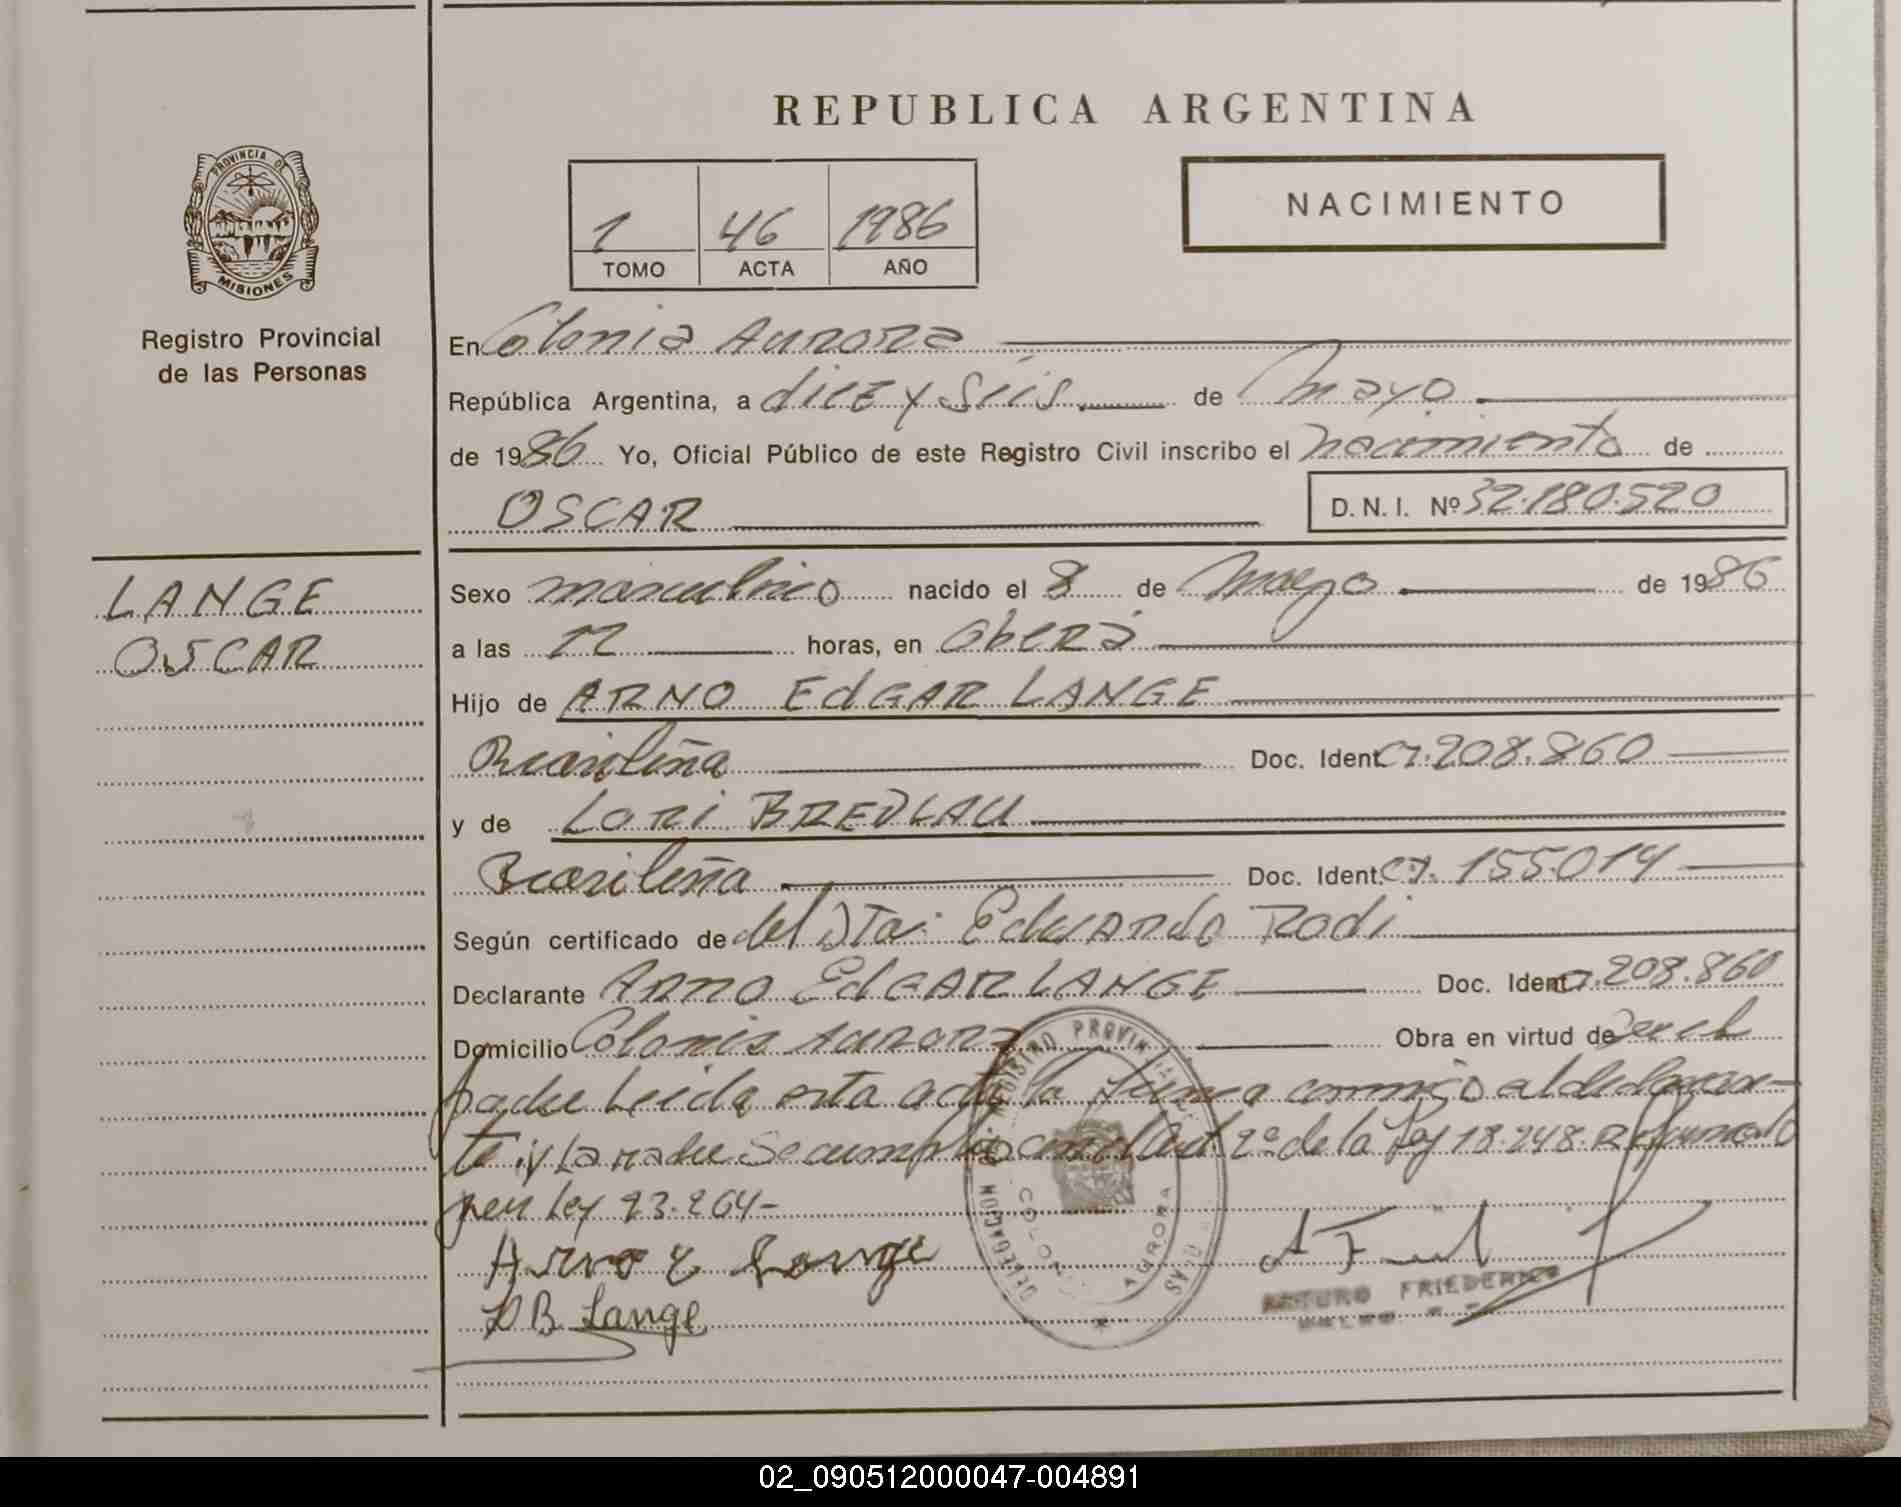 REPUBLICA ARGENTINA
PROVINCIA DE
MISIONES
Registro Provincial
de las Personas
1 46 1986
TOMO ACTA AÑO
NACIMIENTO
En Colonia Aurora
República Argentina, a diez y seis de Mayo
de 1986 Yo, Oficial Público de este Registro Civil inscribo el nacimiento de
OSCAR D.N.I. Nº 32.180.520
LANGE
OSCAR
Sexo masculino nacido el 8 de Mayo de 1986
a las horas, en Oberá
Hijo de ARNO EdGAR LANGE
Brasileña Doc. Ident. C.I. 208.860
y de LORI BREDLAU
Brasileña Doc. Ident. C.I. 155.014
Según certificado de del Eduardo Rodi
Declarante Arno EdGAR LANGE Doc. Ident. C.I. 208.860
Domicilio Colonia Aurora Obra en virtud de ser el
padre Leida esta acta la firma conmigo el declaran-
te y La madre Se cumplio con el Art 2º de la Ley 18.248. Reformado
por Ley 23.264-
Arno E Lange
L B Lange
ARTURO FRIEDERICH
REGISTRO PROVINCIAL
DELEGACION
COLONIA AURORA
02_090512000047-004891